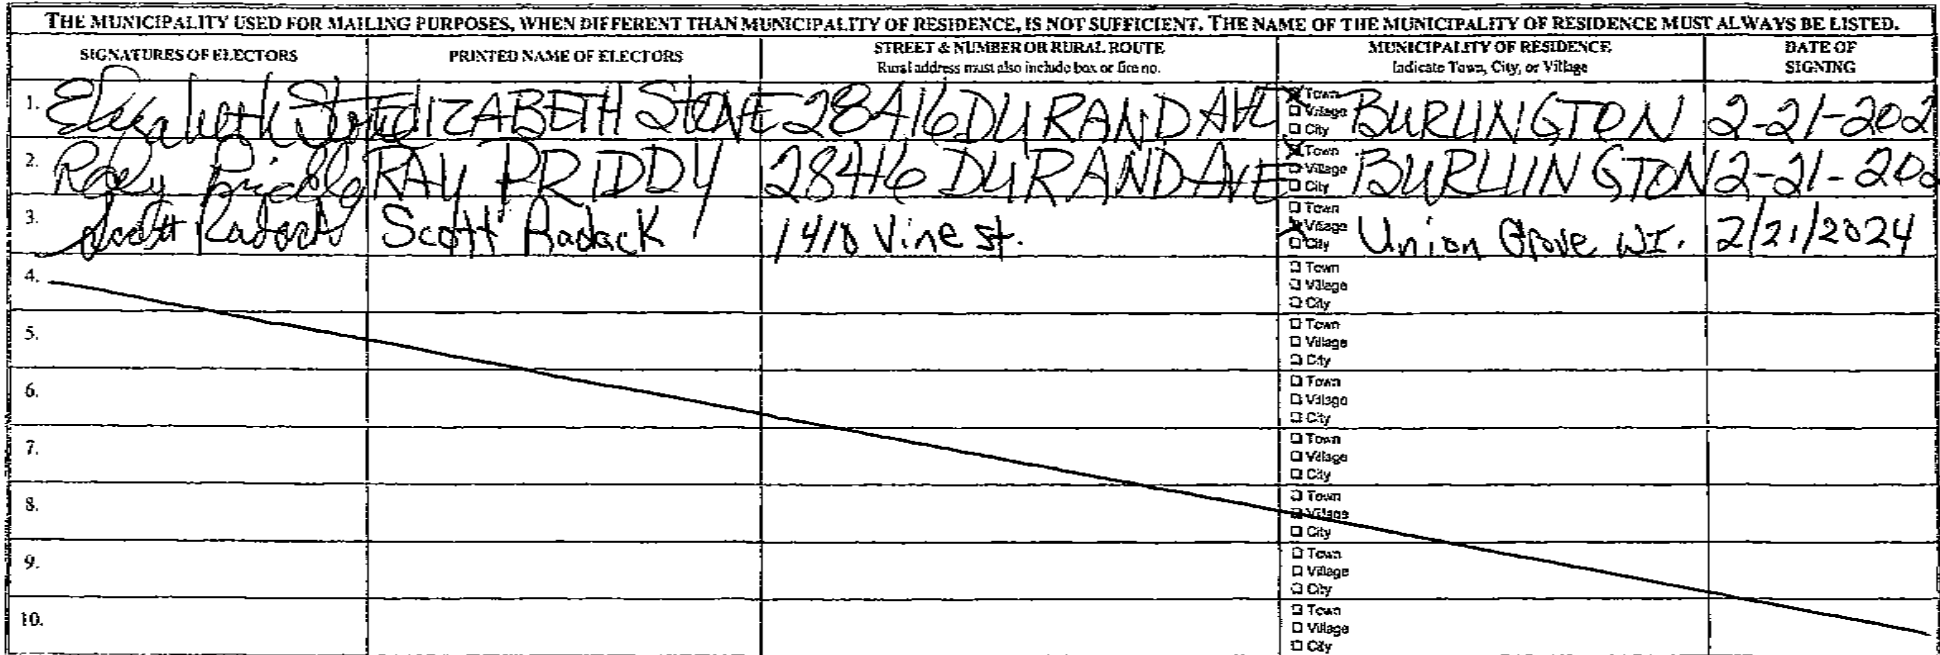 THE MUNICIPALITY USED FOR MAILING PURPOSES, WHEN DIFFERENT THAN MUNICIPALITY OF RESIDENCE, IS NOT SUFFICIENT. THE NAME OF THE MUNICIPALITY OF RESIDENCE MUST ALWAYS BE LISTED.
SIGNATURES OF ELECTORS
PRINTED NAME OF ELECTORS
STREET & NUMBER OR RURAL ROUTE
Rural address must also include box or fire no.
MUNICIPALITY OF RESIDENCE
Indicate Town, City, or Village
DATE OF
SIGNING
1. Elizabeth Stone ELIZABETH STONE 28416 DURAND AVE Town BURLINGTON 2-21-202
Village
City
2. Ray Priddy RAY PRIDDY 28416 DURAND AVE Town BURLINGTON 2-21-202
Village
City
3. Scott Radack Scott Radack 1410 Vine st. Town Union Grove WI. 2/21/2024
Village
City
4. Town
Village
City
5. Town
Village
City
6. Town
Village
City
7. Town
Village
City
8. Town
Village
City
9. Town
Village
City
10. Town
Village
City